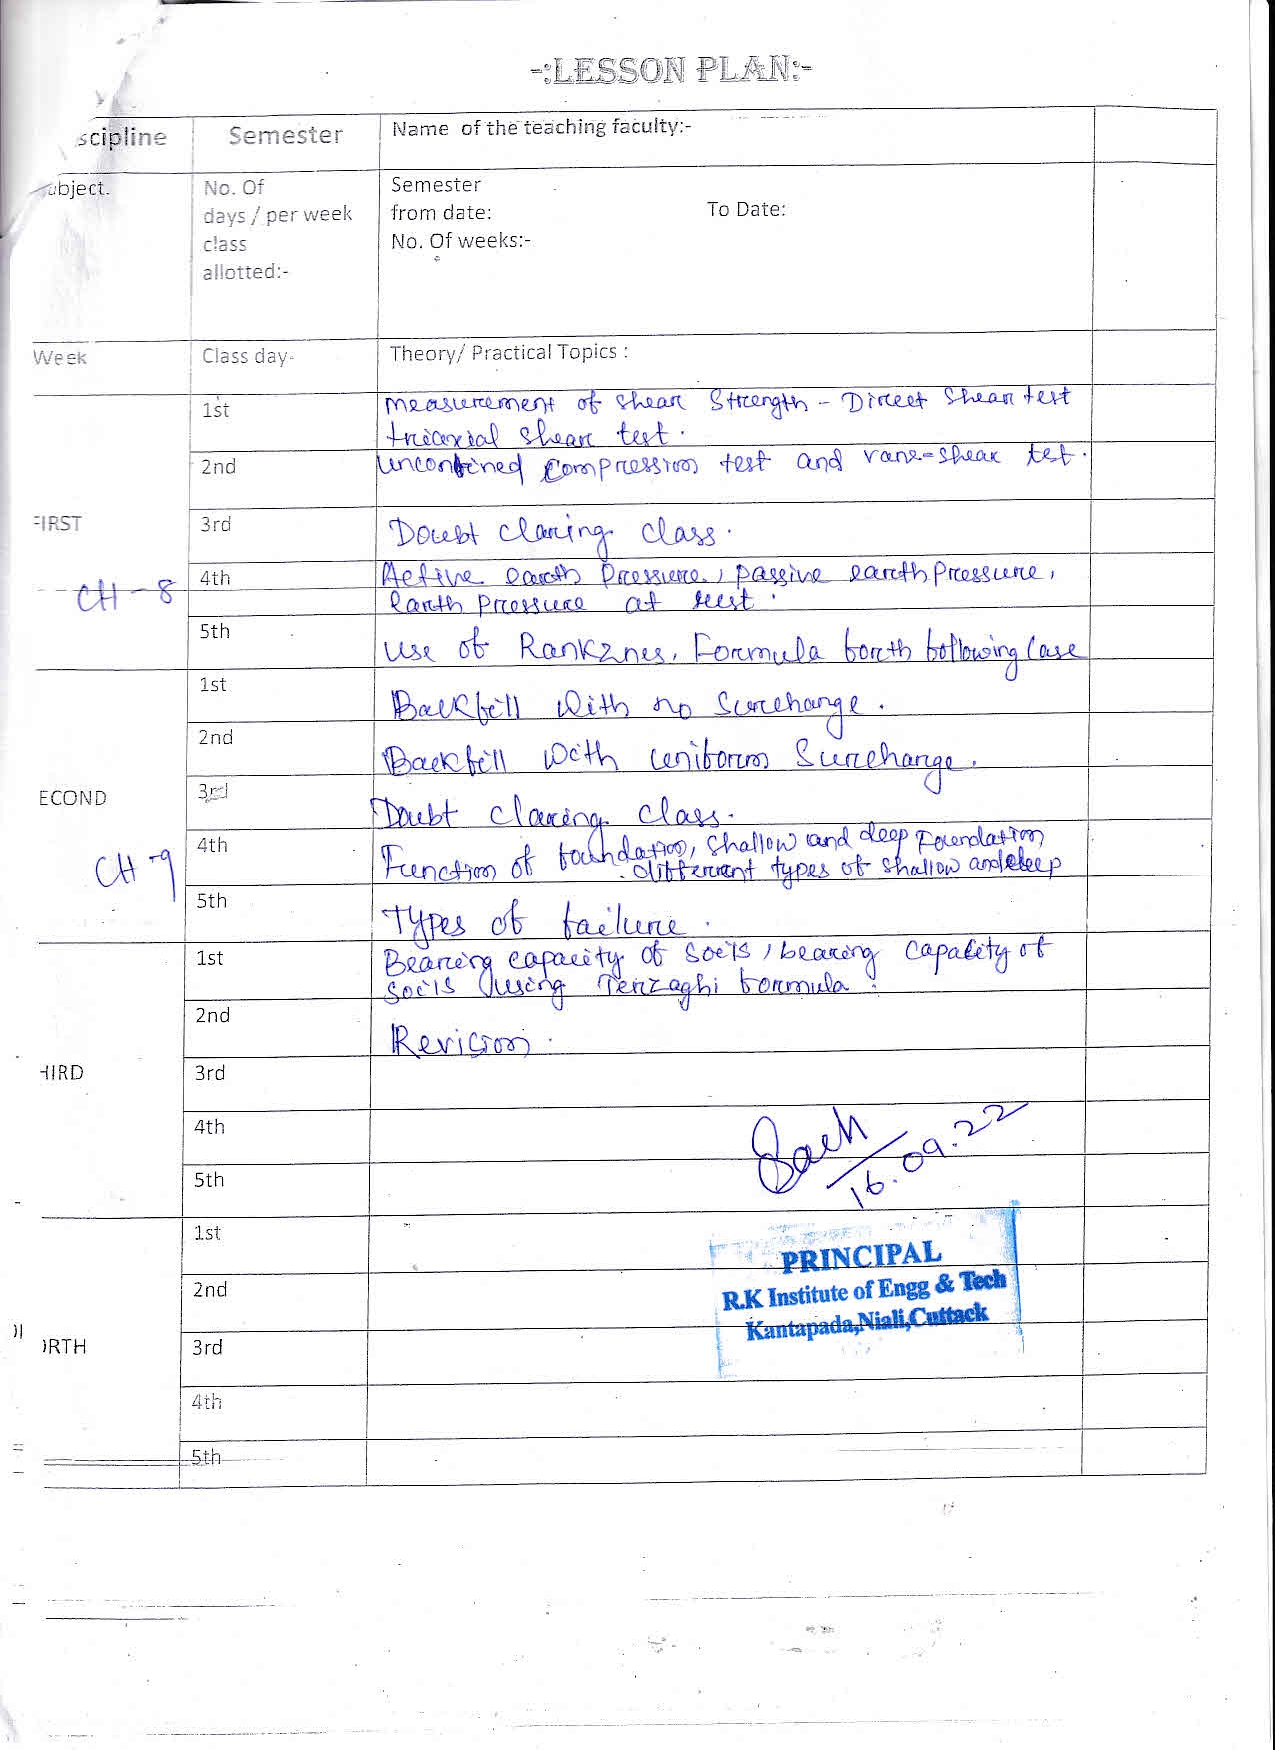 -:LESSON PLAN:-
scipline Semester Name of the teaching faculty:-
ubject. No. Of Semester
days / per week from date: To Date:
class No. Of weeks:-
allotted:-
Week Class day- Theory/ Practical Topics :
1st measurement of shear Strength - Direct Shear test
triaxial shear test.
2nd unconfined compression test and vane-shear tet.
FIRST 3rd Doubt claring class.
4th Active earth pressure, passive earth pressure,
CH-8
earth pressure at rest.
5th use of Rankznes, Formula forth following case
1st Backfill with no surcharge.
2nd Backfill with uniform Surcharge.
ECOND 3rd Doubt claring class.
4th Function of foundation, shallow and deep Foundation
CH-9 different types of shallow and deep
5th Types of failure.
1st Bearing capacity of soils, bearing capacity of
soils using Terzaghi formula.
2nd Revision.
HIRD 3rd
4th
16.09.22
5th
1st
PRINCIPAL
2nd R.K Institute of Engg & Tech
Kantapada,Niali,Cuttack
ORTH 3rd
4th
5th